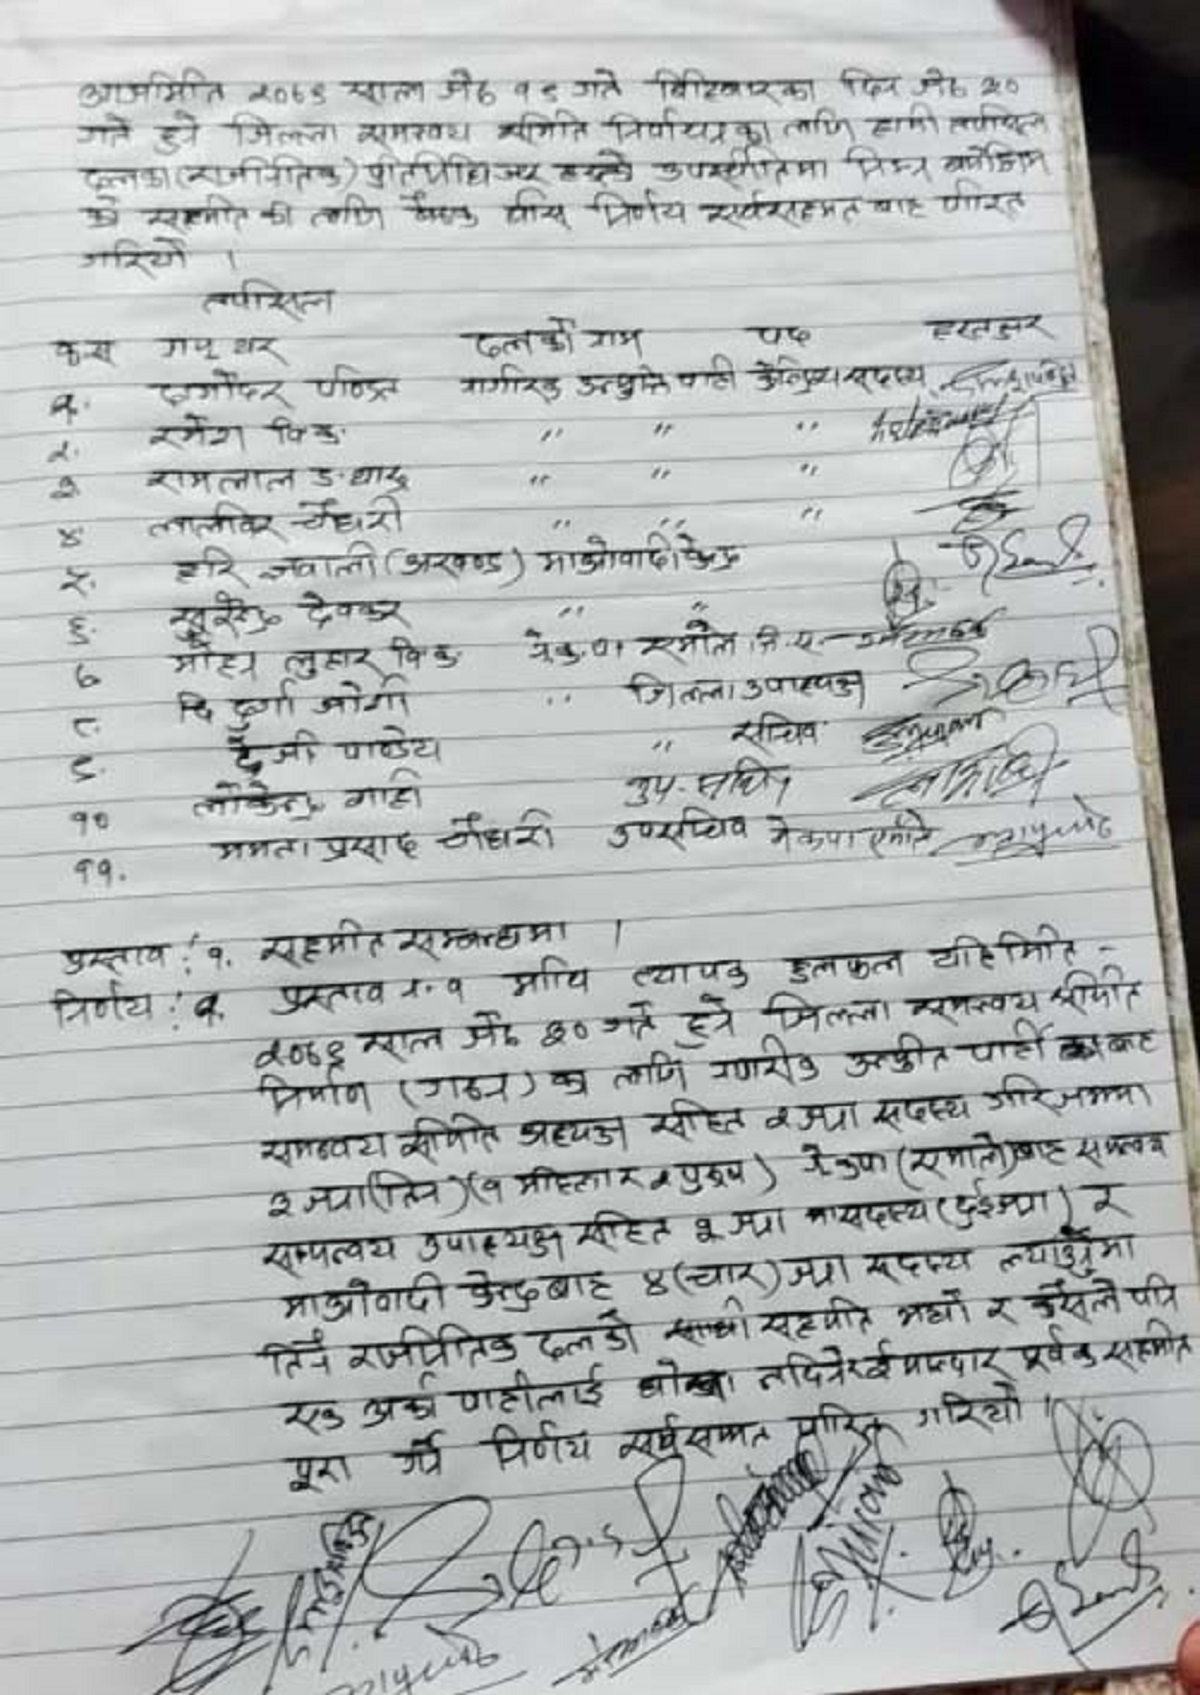 आजमिति २०७९ साल जेठ १९ गते बिहिबारका दिन जेठ ३०
गते हुने जिल्ला समन्वय समिति निर्वाचनका लागि हामी तपसिल
दलका (राजनितिक) प्रतिनिधिहरु उपस्थितिमा निम्न बमोजिम
को सहमति को लागि बैठक बसि निर्णय सर्वसहमत बाट पारित
गरियो ।
तपसिल
क्र.स नाम थर दलको नाम पद हस्ताक्षर
१. दामोदर पण्डित नागरिक उन्मुक्ति पार्टी केन्द्रिय सदस्य
२. रमेश वि.क. " " "
३. रामलाल ड.थारु " " "
४. लालविर चौधरी " " "
५. हरि ज्ञवाली (अखण्ड) माओवादी केन्द्र
६. सुरेन्द्र " "
७ मोहन लुहार वि.क. ने.क.पा एमाले जि.स.
८. दुर्गा जोगी " जिल्ला उपाध्यक्ष
९. पाण्डेय " सचिव
१० लोकेन्द्र शाही उप-सचिव
११. ममता प्रसाद चौधरी उपसचिव नेकपा एमाले
प्रस्ताव : १. सहमति सम्बन्धमा ।
निर्णय : १. प्रस्ताव नं. १ माथि व्यापक छलफल यहि मिति -
२०७९ साल जेठ ३० गते हुने जिल्ला समन्वय समिति
निर्माण (गठन) का लागि नागरीक उन्मुक्ति पार्टी बाट
समन्वय समिति अध्यक्ष सहित २ जना सदस्य गरि जम्मा
३ जना (तिन) (१ महिला र २ पुरुष) नेकपा (एमाले) बाट समन्वय
समन्वय उपाध्यक्ष सहित २ जना सदस्य (दुईजना) र
माओवादी केन्द्रबाट ४ (चार) जना सदस्य ल्याउनेमा
तिनै राजनितिक दलको साझा सहमति भयो र कसैले पनि
एक अर्का पार्टीलाई धोका नदिने इमानदार पूर्वक सहमति
पुरा गर्ने निर्णय सर्वसम्मत पारित गरियो ।